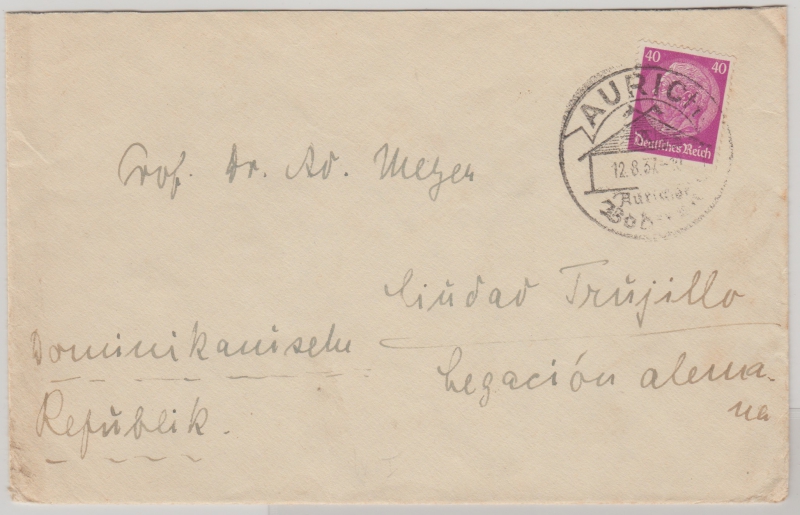 40 40
Deutsches Reich
AURICH
12.8.37
Prof. Dr. Ad. Meyer
Ciudad Trujillo
Dominikanische
Legación alema-
na
Republik.